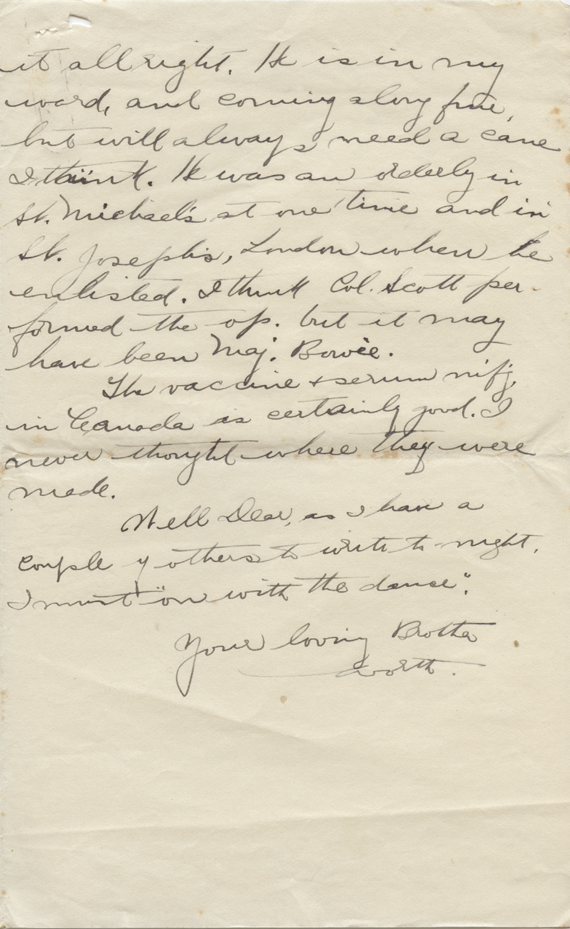 it all right. He is in my
ward, and coming along fine,
but will always need a cane
I think. He was an orderly in
St. Michael's at one time and in
St. Joseph's, London when he
enlisted. I think Col. Scott per-
formed the op. but it may
have been Maj. Bowie.
The vaccine + serum mifg.
in Canada is certainly good. I
never thought where they were
made.
Well Dear, as I have a
couple of others to write to-night,
I must "on with the dance".
Your loving Brother
Worth.